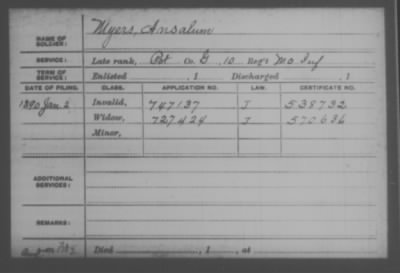 NAME OF SOLDIER: Myers, Ansalum
SERVICE: Late rank, Pvt Co. G, 10 Reg't Mo Inf
TERM OF SERVICE: Enlisted , 1 Discharged , 1
DATE OF FILING. CLASS. APPLICATION NO. LAW. CERTIFICATE NO.
1890 Jan 2 Invalid, 747137 J 538732
Widow, 727424 J 570636
Minor,
ADDITIONAL SERVICES:
REMARKS:
Died , 1 , at